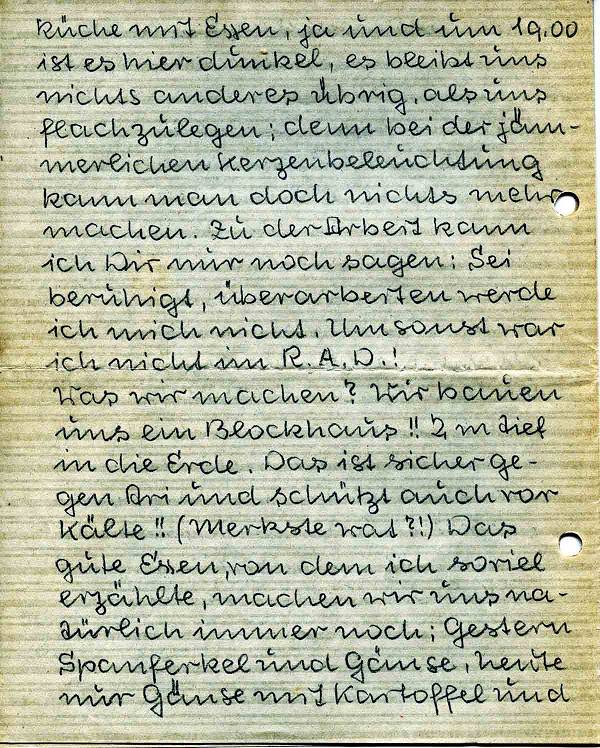 küche mit Essen, ja und um 19.00
ist es hier dunkel, es bleibt uns
nichts anderes übrig, als uns
flachzulegen; denn bei der jäm-
merlichen Kerzenbeleuchtung
kann man doch nichts mehr
machen. Zu der Arbeit kann
ich Dir nur noch sagen: Sei
beruhigt, überarbeiten werde
ich mich nicht. Umsonst war
ich nicht im R.A.D.!
Was wir machen? Wir bauen
uns ein Blockhaus!! 2 m tief
in die Erde. Das ist sicher ge-
gen Ari und schützt auch vor
Kälte!! (Merkste wat?!) Das
gute Essen, von dem ich soviel
erzählte, machen wir uns na-
türlich immer noch; Gestern
Spanferkel und Gänse, heute
nur Gänse mit Kartoffel und